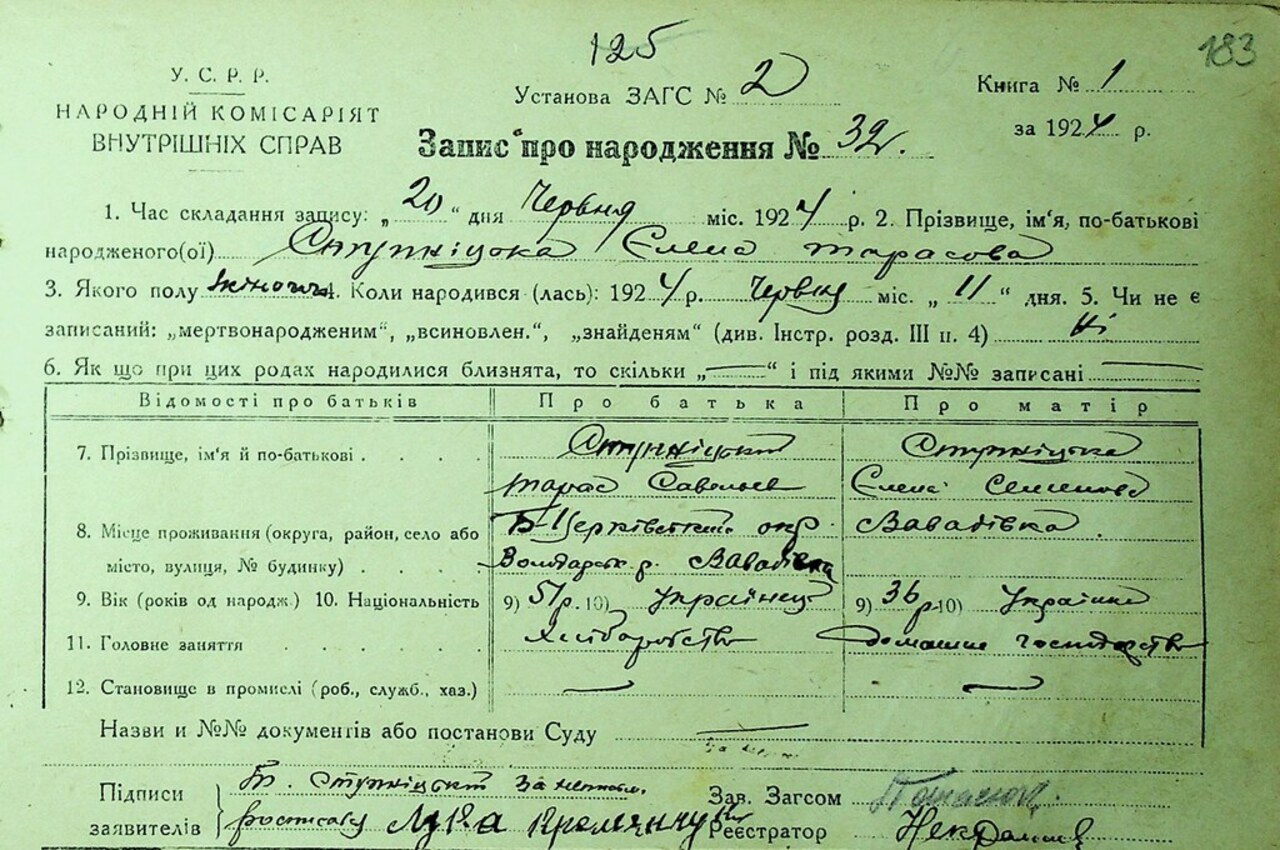 125
183
У. С. Р. Р.
НАРОДНІЙ КОМІСАРІЯТ
ВНУТРІШНІХ СПРАВ
Установа ЗАГС № 2
Книга № 1
за 1924 р.
Запис про народження № 32
1. Час складання запису: „ 20 “ дня Червня міс. 1924 р. 2. Прізвище, ім'я, по-батькові
народженого(ої) Ступніцька Єлена Тарасова
3. Якого полу жіночої 4. Коли народився (лась): 1924 р. Червня міс. „ 11 “ дня. 5. Чи не є
записаний: „мертвонародженим“, „всиновлен.“, „знайденям“ (див. Інстр. розд. III п. 4) Ні
6. Як що при цих родах народилися близнята, то скільки „ — “ і під якими №№ записані —
Відомості про батьків Про батька Про матір
7. Прізвище, ім'я й по-батькові . . . . Ступніцький Ступніцька
Тарас Савельев Єлена Семенова
8. Місце проживання (округа, район, село або Б-Церківський окр. Завадівка
місто, вулиця, № будинку) . . . . Володарськ р. Завадівка
9. Вік (років од народж.) 10. Національність 9) 51 р. 10) Українец 9) 36 р. 10) Українка
11. Головне заняття . . . . . Хліборобство Домашне господарство
12. Становище в промислі (роб., служб., хаз.) — —
Назви и №№ документів або постанови Суду —
Підписи
заявителів
Т. Ступніцький за неписьм.
росписався Лука Кременчук
Зав. Загсом
Реєстратор